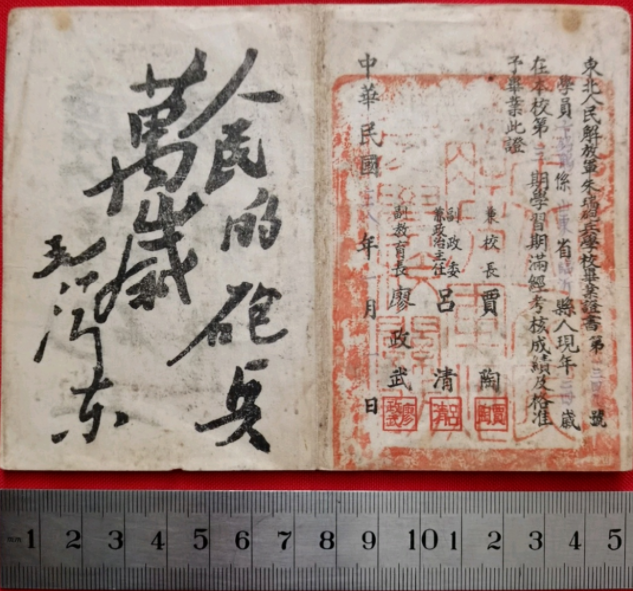 東北人民解放軍朱瑞砲兵學校畢業證書 第 號
學員 係山東省 縣人現年 歲
在本校第 期學習期滿經考核成績及格准
予畢業此證
兼校長 賈陶
副政委
兼政治主任 呂清
副教育長 廖政武
中華民國 年 月 日
人民的砲兵
萬歲
毛澤东
1 2 3 4 5 6 7 8 9 10 1 2 3 4 5